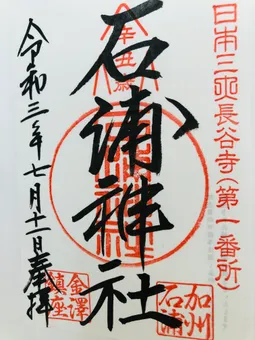 日本三所長谷寺(第一番所)
辛丑歳
石浦神社
加州
石浦
金澤
鎮座
令和三年七月十一日奉拝